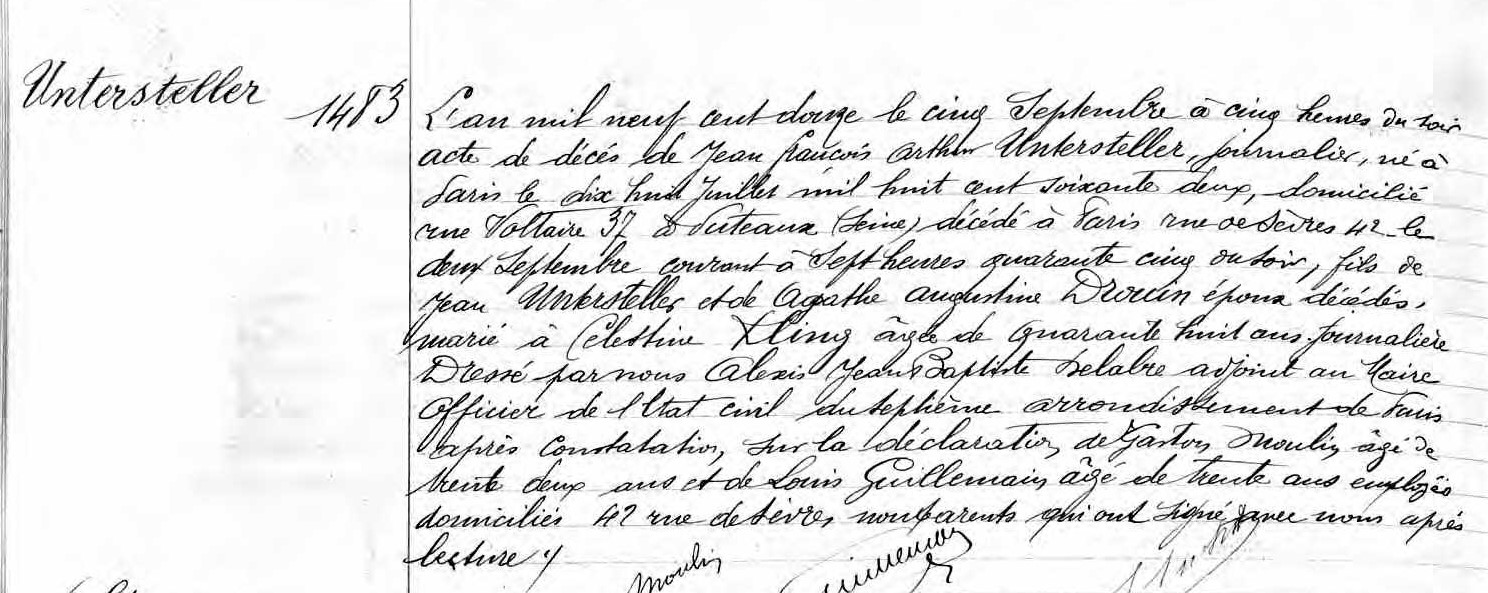 Untersteller
1483
L'an mil neuf cent douze le cinq Septembre à cinq heures du soir
acte de décés de Jean françois arthur Untersteller, journalier, né à
Paris le dix huit Juillet mil huit cent soixante deux, domicilié
rue Voltaire 37 à Puteaux (Seine) décédé à Paris rue de Sèvres 42 le
deux Septembre courant à Sept heures quarante cinq du soir, fils de
Jean Untersteller et de Agathe augustine Drouin époux décédés,
marié à Célestine Kling âgée de quarante huit ans journalière
Dressé par nous Alexis Jean Baptiste Delabre adjoint au Maire
Officier de l'Etat civil du septième arrondissement de Paris
après constatation, sur la déclaration de Gaston Moulin âgé de
trente deux ans et de Louis Guillemain âgé de trente ans employés
domiciliés 42 rue de Sèvres, non parents qui ont signé avec nous après
lecture
Moulin
Guillemain